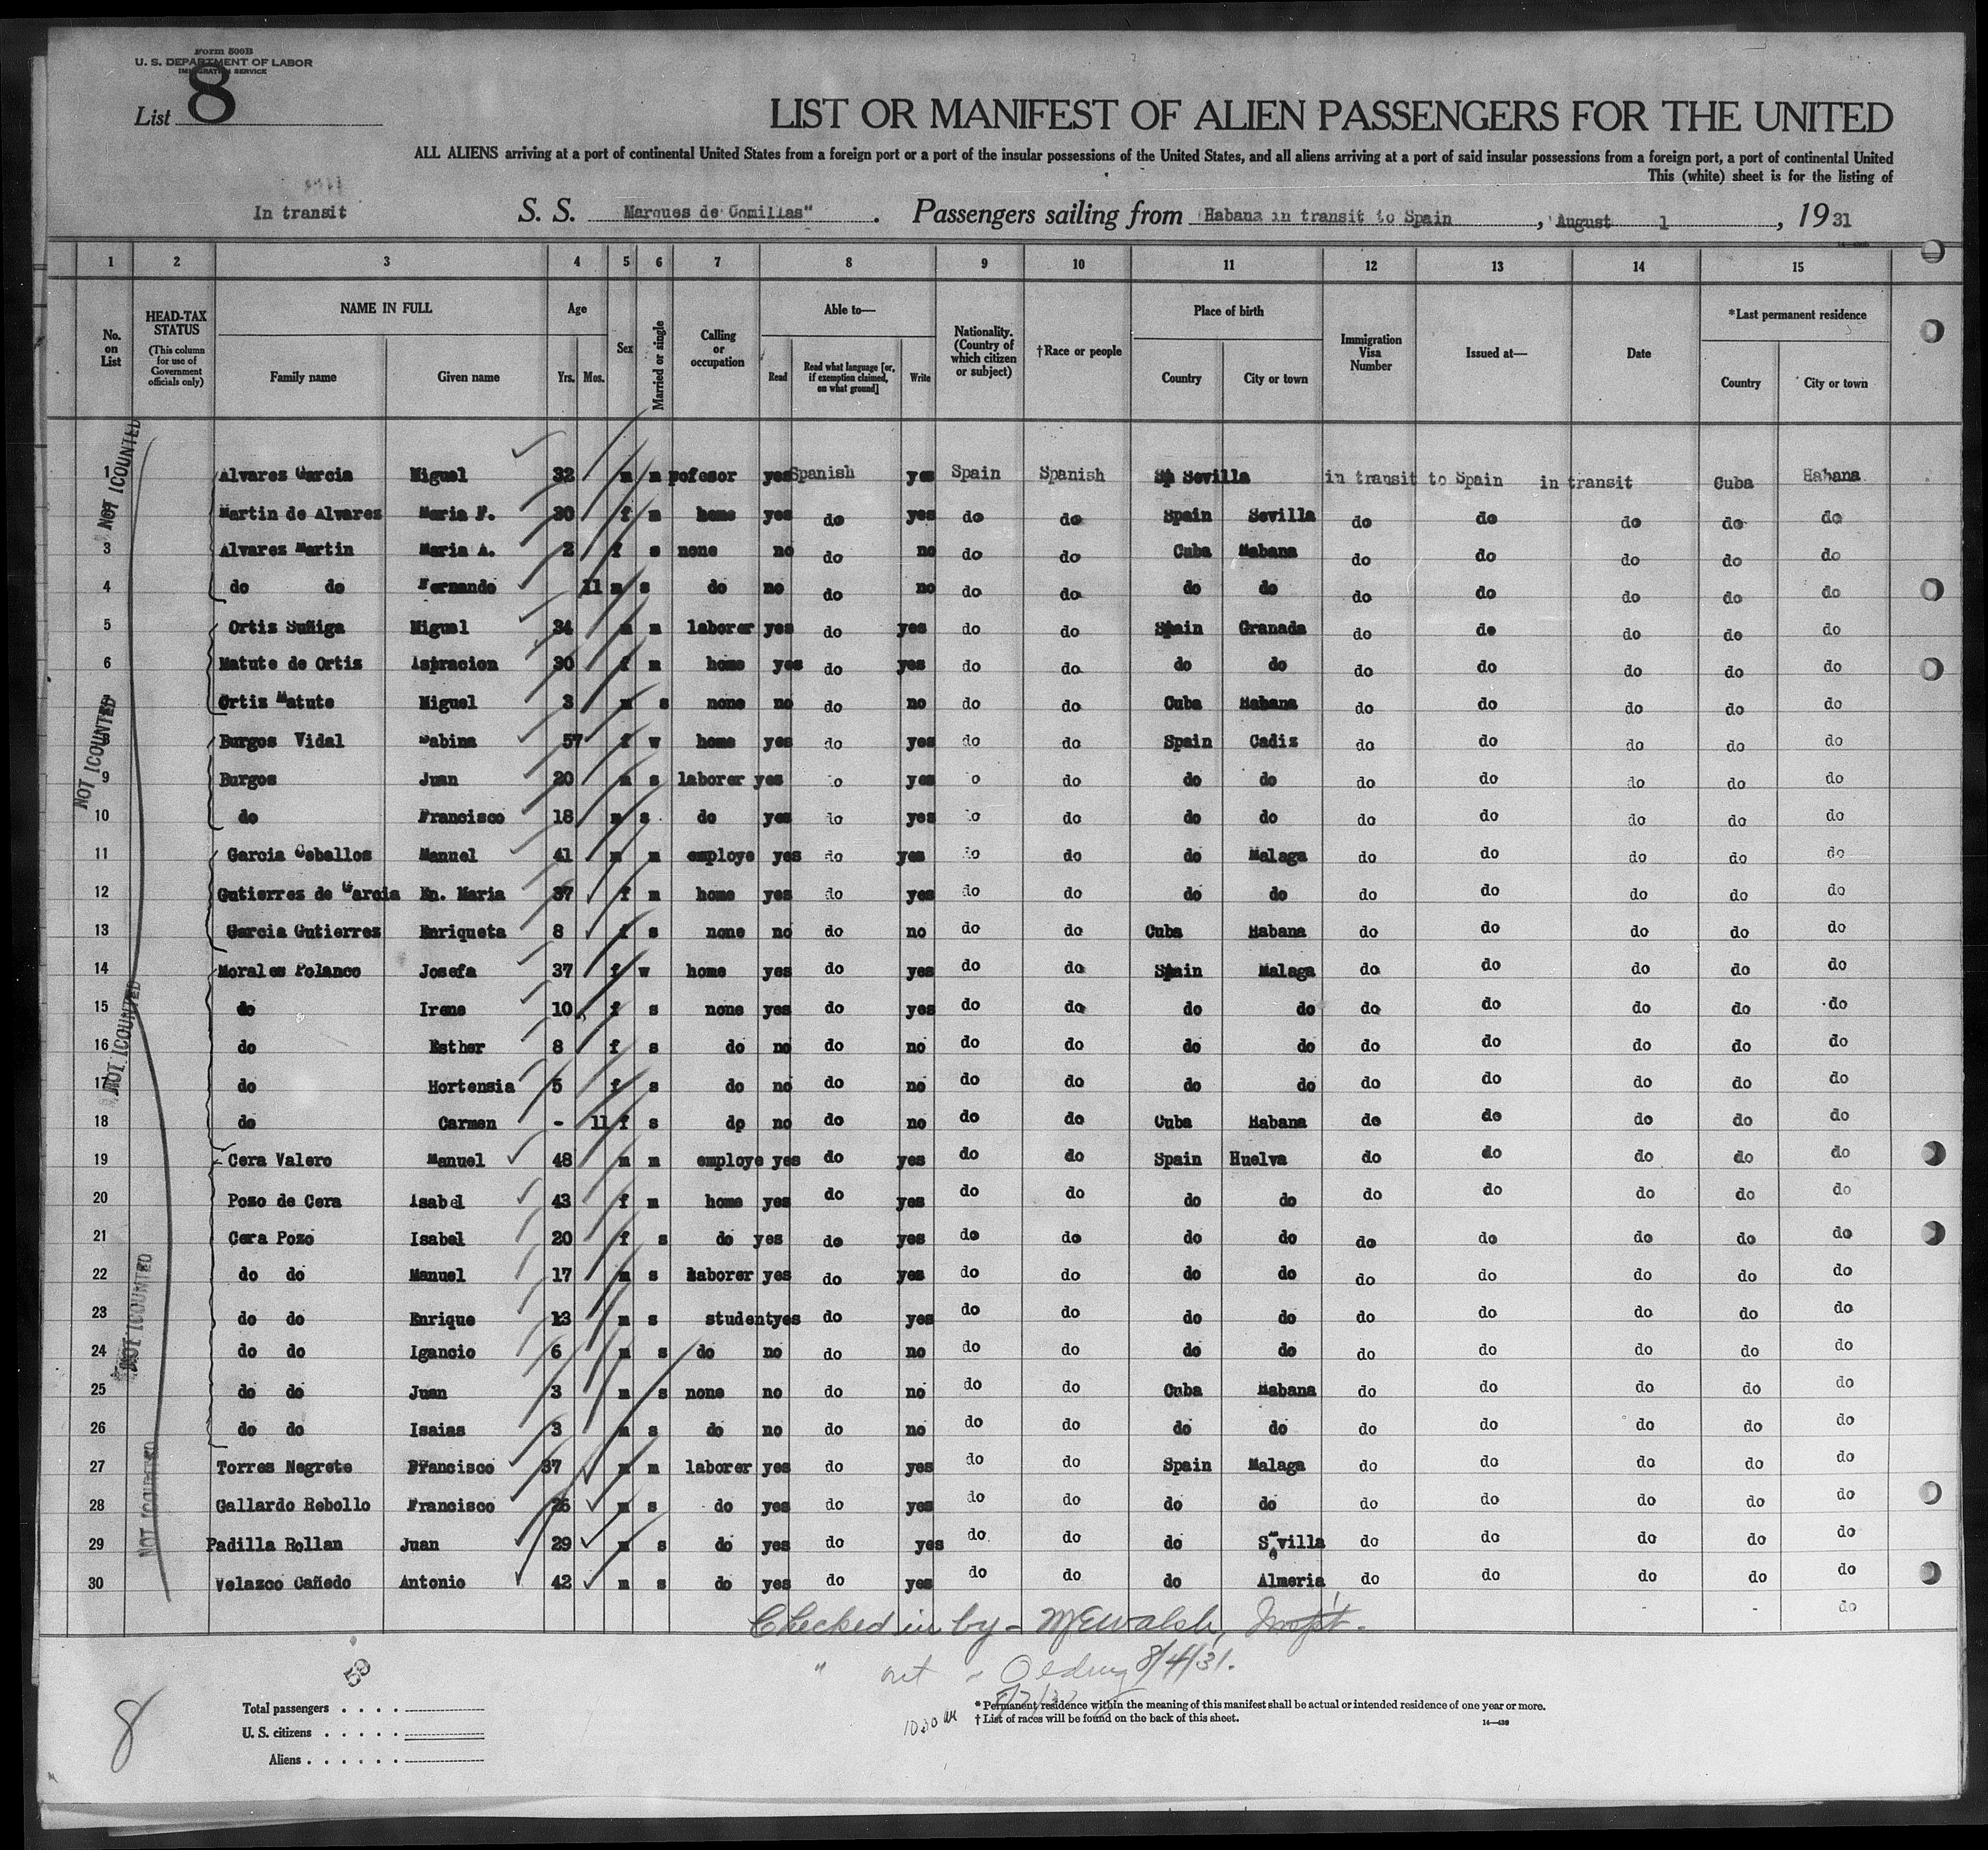 Form 500B
U. S. DEPARTMENT OF LABOR
IMMIGRATION SERVICE
List 8
LIST OR MANIFEST OF ALIEN PASSENGERS FOR THE UNITED
ALL ALIENS arriving at a port of continental United States from a foreign port or a port of the insular possessions of the United States, and all aliens arriving at a port of said insular possessions from a foreign port, a port of continental United
This (white) sheet is for the listing of
In transit S. S. Marques de Comillas" . Passengers sailing from Habana in transit to Spain , August 1 , 19 31
1 2 3 4 5 6 7 8 9 10 11 12 13 14 15
No. on List
HEAD-TAX STATUS (This column for use of Government officials only)
NAME IN FULL Family name Given name
Age Yrs. Mos.
Sex
Married or single
Calling or occupation
Able to— Read Read what language [or, if exemption claimed, on what ground] Write
Nationality. (Country of which citizen or subject)
†Race or people
Place of birth Country City or town
Immigration Visa Number
Issued at—
Date
*Last permanent residence Country City or town
NOT COUNTED
NOT COUNTED
NOT COUNTED
NOT COUNTED
NOT COUNTED
1 Alvarez Garcia Miguel 32 m m pofesor yes Spanish yes Spain Spanish Sp Sevilla in transit to Spain in transit Cuba Habana
2 Martin de Alvarez Maria F. 30 f m home yes do yes do do Spain Sevilla do do do do do
3 Alvarez Martin Maria A. 2 f s none no do no do do Cuba Habana do do do do do
4 do do Fernando 11 m s do no do no do do do do do do do do do
5 Ortiz Suñiga Miguel 34 m m laborer yes do yes do do Spain Granada do do do do do
6 Matute de Ortiz Aspracion 30 f m home yes do yes do do do do do do do do do
7 Ortiz Matute Miguel 3 m s none no do no do do Cuba Habana do do do do do
8 Burgos Vidal Sabina 57 f w home yes do yes do do Spain Cadiz do do do do do
9 Burgos Juan 20 m s laborer yes do yes do do do do do do do do do
10 do Francisco 18 m s do yes do yes do do do do do do do do do
11 Garcia Ceballos Manuel 41 m m employe yes do yes do do do Malaga do do do do do
12 Gutierrez de Garcia En. Maria 37 f m home yes do yes do do do do do do do do do
13 Garcia Gutierrez Enriqueta 8 f s none no do no do do Cuba Habana do do do do do
14 Morales Polanco Josefa 37 f w home yes do yes do do Spain Malaga do do do do do
15 do Irene 10 f s none yes do yes do do do do do do do do do
16 do Esther 8 f s do no do no do do do do do do do do do
17 do Hortensia 5 f s do no do no do do do do do do do do do
18 do Carmen - 11 f s do no do no do do Cuba Habana do do do do do
19 Cera Valero Manuel 48 m m employe yes do yes do do Spain Huelva do do do do do
20 Pozo de Cera Isabel 43 f m home yes do yes do do do do do do do do do
21 Cera Pozo Isabel 20 f s do yes do yes do do do do do do do do do
22 do do Manuel 17 m s laborer yes do yes do do do do do do do do do
23 do do Enrique 13 m s student yes do yes do do do do do do do do do
24 do do Igancio 6 m s do no do no do do do do do do do do do
25 do do Juan 3 m s none no do no do do Cuba Habana do do do do do
26 do do Isaias 3 m s do no do no do do do do do do do do do
27 Torres Negrete Francisco 37 m m laborer yes do yes do do Spain Malaga do do do do do
28 Gallardo Rebollo Francisco 26 m s do yes do yes do do do do do do do do do
29 Padilla Rollan Juan 29 m s do yes do yes do do do Sevilla do do do do do
30 Velazco Cañedo Antonio 42 m s do yes do yes do do do Almeria do do do do do
- - do
Checked in by - M E Walsh, Inspt.
" out " 8/4/31.
59
8
Total passengers . . . .
U. S. citizens . . . . .
Aliens . . . . . .
* Permanent residence within the meaning of this manifest shall be actual or intended residence of one year or more.
† List of races will be found on the back of this sheet.